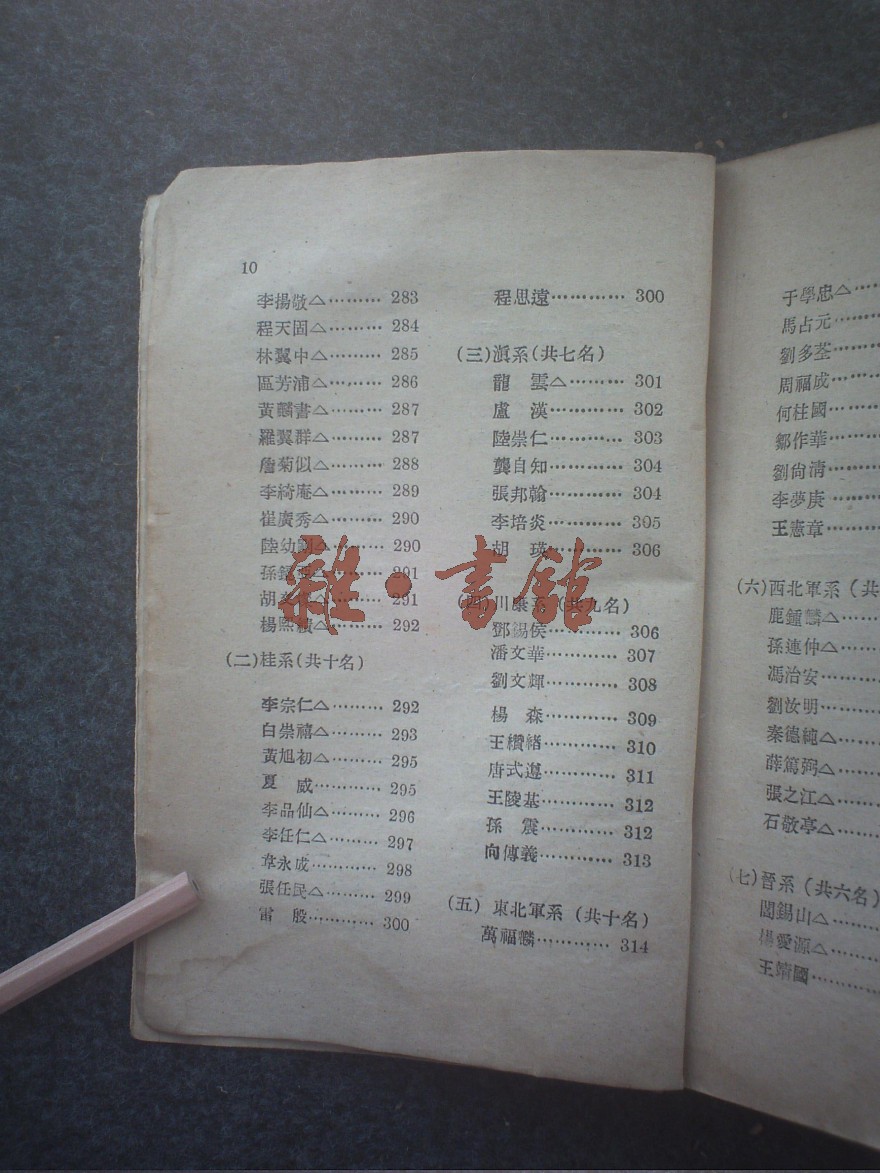 10
李揚敬△……… 283
程天固△……… 284
林翼中△……… 285
區芳浦△……… 286
黃麟書△……… 287
羅翼群△……… 287
詹菊似△……… 288
李綺庵△……… 289
崔廣秀△……… 290
陸幼剛△……… 290
孫 △……… 291
胡 ……… 291
楊熙績△……… 292
(二)桂系(共十名)
李宗仁△……… 292
白崇禧△……… 293
黃旭初△……… 295
夏　威………… 295
李品仙△……… 296
李任仁△……… 297
韋永成………… 298
張任民△……… 299
雷　殷………… 300
程思遠………… 300
(三)滇系(共七名)
龍　雲△……… 301
盧　漢………… 302
陸崇仁………… 303
龔自知………… 304
張邦翰………… 304
李培炎………… 305
胡　瑛………… 306
(四)川康系(共九名)
鄧錫侯………… 306
潘文華………… 307
劉文輝………… 308
楊　森………… 309
王纘緒………… 310
唐式遵………… 311
王陵基………… 312
孫　震………… 312
向傳義………… 313
(五)東北軍系(共十名)
萬福麟………… 314
于學忠△……
馬占元……
劉多荃……
周福成……
何柱國……
鄒作華……
劉尙淸……
李夢庚……
王憲章……
(六)西北軍系(共
鹿鍾麟△……
孫連仲△……
馮治安……
劉汝明……
秦德純△……
薛篤弼△……
張之江△……
石敬亭△……
(七)晉系(共六名)
閻錫山△……
楊愛源△……
王靖國……
雜·書館